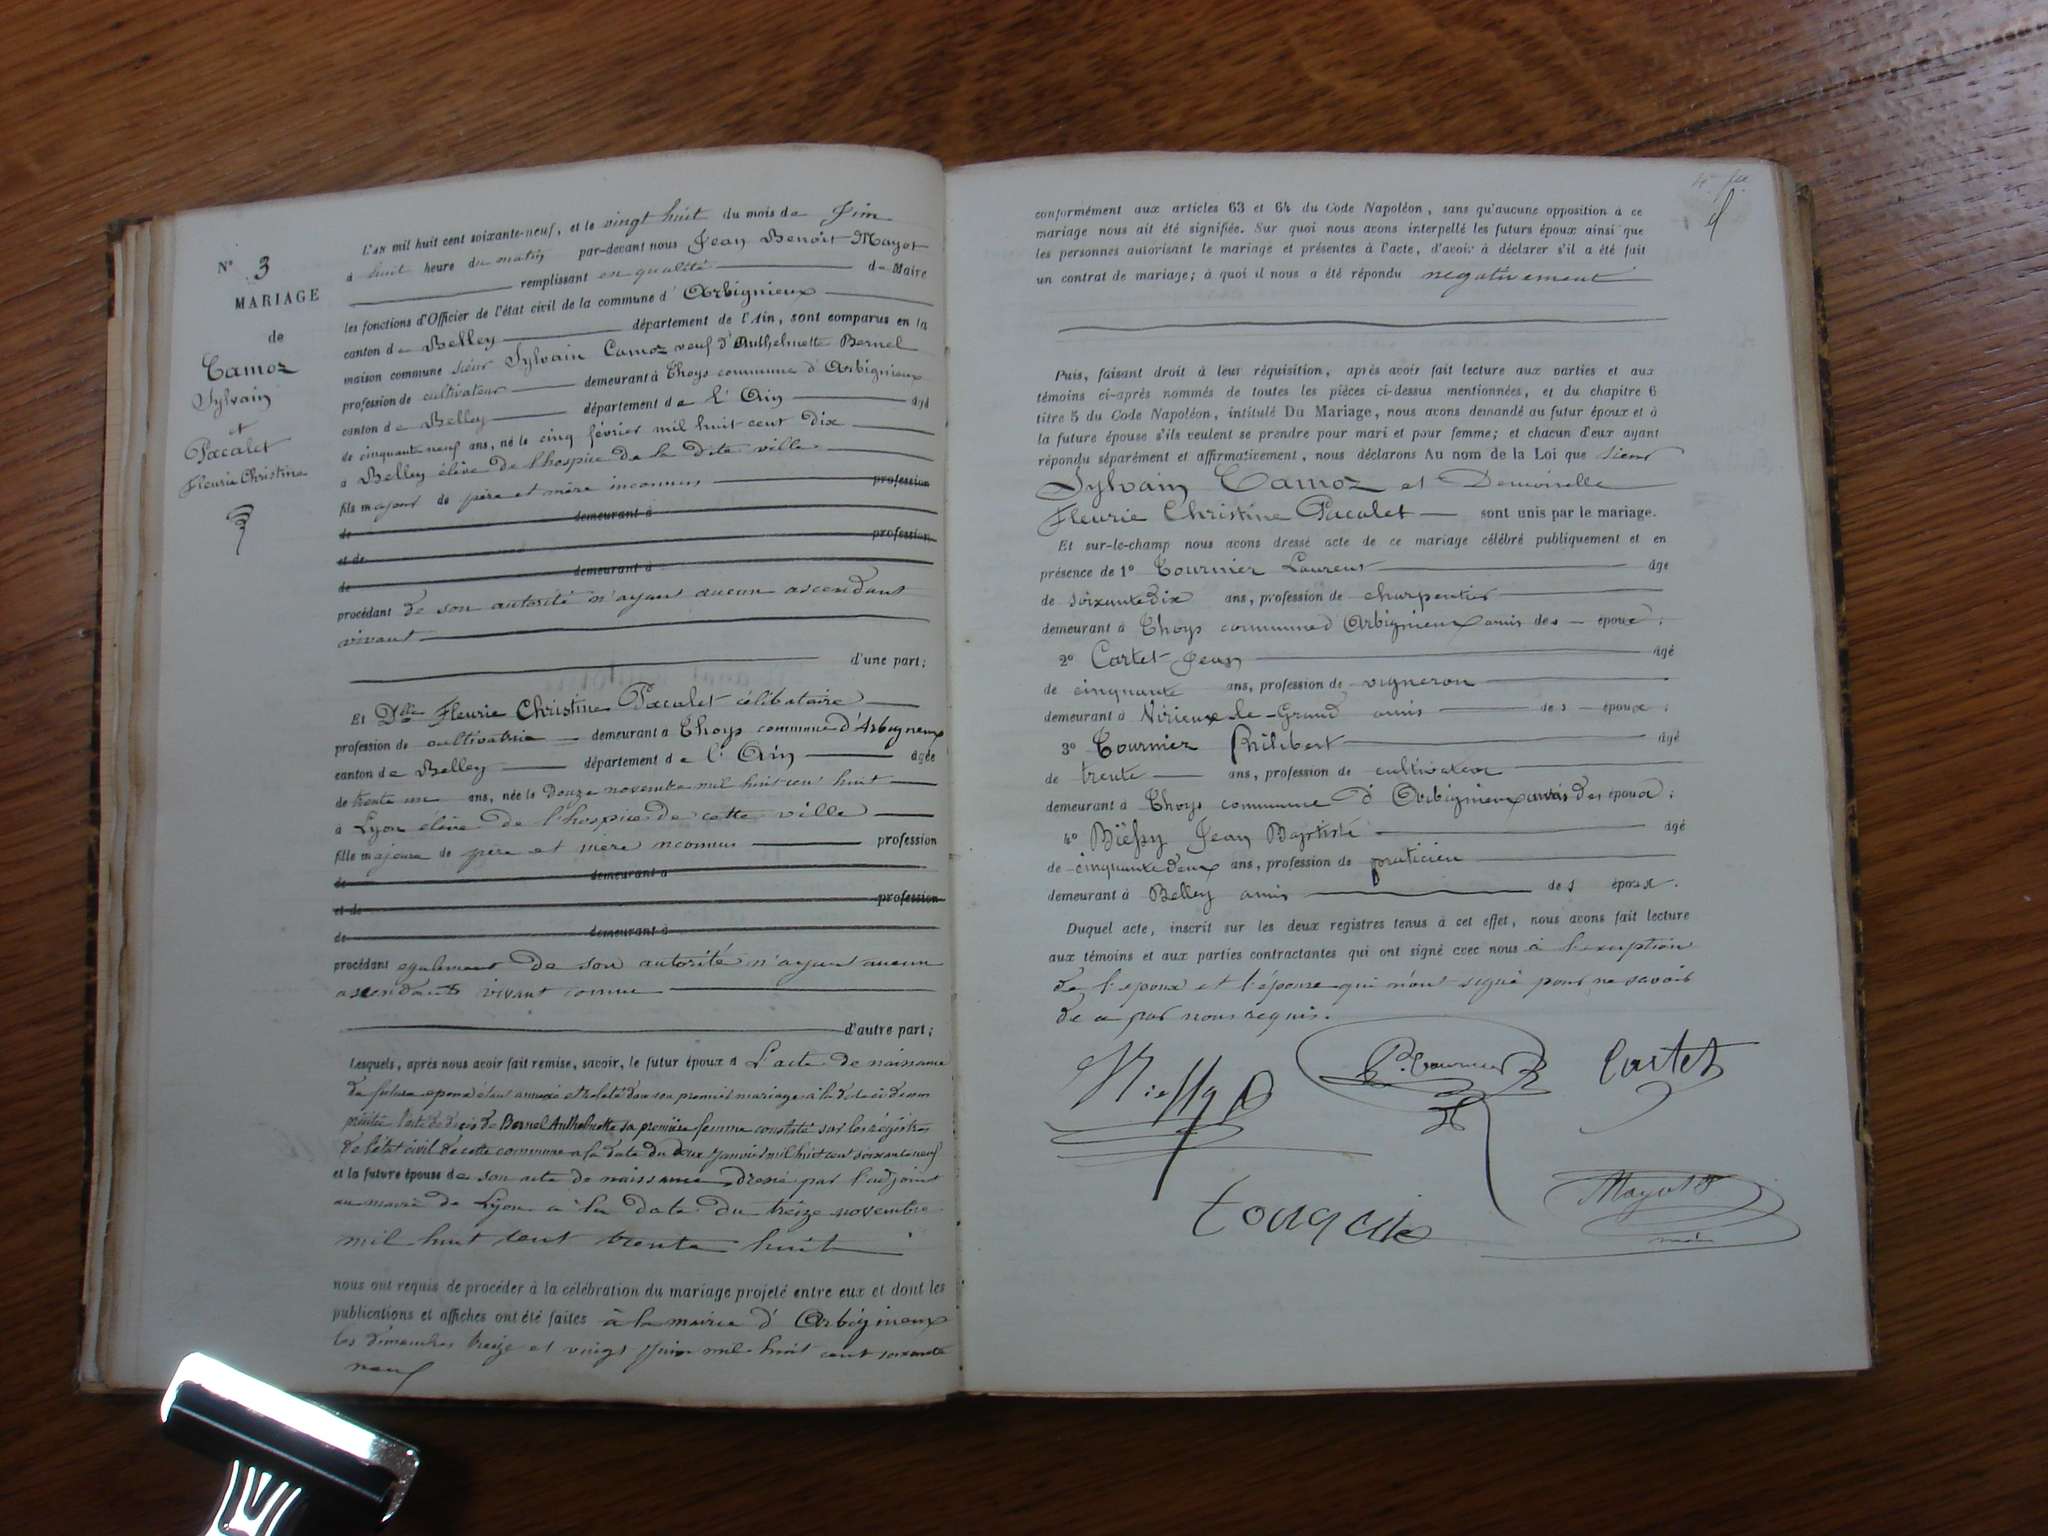 N° 3
MARIAGE
de
Camoz
Sylvain
et
Pacalet
Fleurie Christine
L'an mil huit cent soixante-neuf, et le vingt huit du mois de Juin
à huit heure du matin par-devant nous Jean Benoit Mayot
remplissant en qualité de Maire
les fonctions d'Officier de l'état civil de la commune d'Arbignieux
canton de Belley département de l'Ain, sont comparus en la
maison commune sieur Sylvain Camoz veuf d'Anthelmette Bernel
profession de cultivateur demeurant à Thoys commune d'Arbignieux
canton de Belley département de l'Ain âgé
de cinquante neuf ans, né le cinq février mil huit cent dix
à Belley élève de l'hospice de la dite ville
fils majeur de père et mère inconnus profession
de demeurant à
et de profession
de demeurant à
procédant de son autorité n'ayant aucun ascendant
vivant
d'une part;
Et Dlle Fleurie Christine Pacalet célibataire
profession de cultivatrice demeurant à Thoys commune d'Arbigneux
canton de Belley département de l'Ain âgée
de trente un ans, née le Douze novembre mil huit cen huit
à Lyon élève de l'hospice de cette ville
fille majeure de père et mère nconnus profession
de demeurant à
et de profession
de demeurant à
procédant egalement de son autorité n'ayant aucun
ascendants vivant connu
d'autre part;
Lesquels, après nous avoir fait remise, savoir, le futur époux d L'acte de naissance
du futur epoux étant annexé et relaté dans son premier mariage à la date ci dessus
l'acte de décès de Bernel Anthelmette sa première femme constaté sur les régistres
de l'état civil de cette commune a la date du deux Janvier mil huit cent soixante neuf
et la future épouse de son acte de naissance Dressé par l'adjoint
au maire de Lyon à la date du treize novembre
mil huit cent trente huit
nous ont requis de procéder à la célébration du mariage projeté entre eux et dont les
publications et affiches ont été faites à la mairie d'Arbignieux
les dimanches treize et vingt Juin mil huit cent soixante
neuf
conformément aux articles 63 et 64 du Code Napoléon, sans qu'aucune opposition à ce
mariage nous ait été signifiée. Sur quoi nous avons interpellé les futurs époux ainsi que
les personnes autorisant le mariage et présentes à l'acte, d'avoir à déclarer s'il a été fait
un contrat de mariage; à quoi il nous a été répondu negativement
Puis, faisant droit à leur réquisition, après avoir fait lecture aux parties et aux
témoins ci-après nommés de toutes les pièces ci-dessus mentionnées, et du chapitre 6
titre 5 du Code Napoléon, intitulé Du Mariage, nous avons demandé au futur époux et à
la future épouse s'ils veulent se prendre pour mari et pour femme; et chacun d'eux ayant
répondu séparément et affirmativement, nous déclarons Au nom de la Loi que sieur
Sylvain Camoz et Demoiselle
Fleurie Christine Pacalet sont unis par le mariage.
Et sur-le-champ nous avons dressé acte de ce mariage célébré publiquement et en
présence de 1° Tournier Laurent âgé
de soixante dix ans, profession de charpentier
demeurant à Thoys commune d'Arbignieux amis des époux;
2° Cartet Jean âgé
de cinquante ans, profession de vigneron
demeurant à Virieux-le-Grand amis des époux;
3° Tournier Philibert âgé
de trente ans, profession de cultivateur
demeurant à Thoys commune d'Arbignieux amis des époux;
4° Bieffy Jean Baptiste âgé
de cinquante deux ans, profession de praticien
demeurant à Belley amis des époux.
Duquel acte, inscrit sur les deux registres tenus à cet effet, nous avons fait lecture
aux témoins et aux parties contractantes qui ont signé avec nous à l'exception
de l'epoux et l'épouse qui n'ont signé pour ne savoir
de ce par nous requis.
P. Tournier
Cartet
Mayot